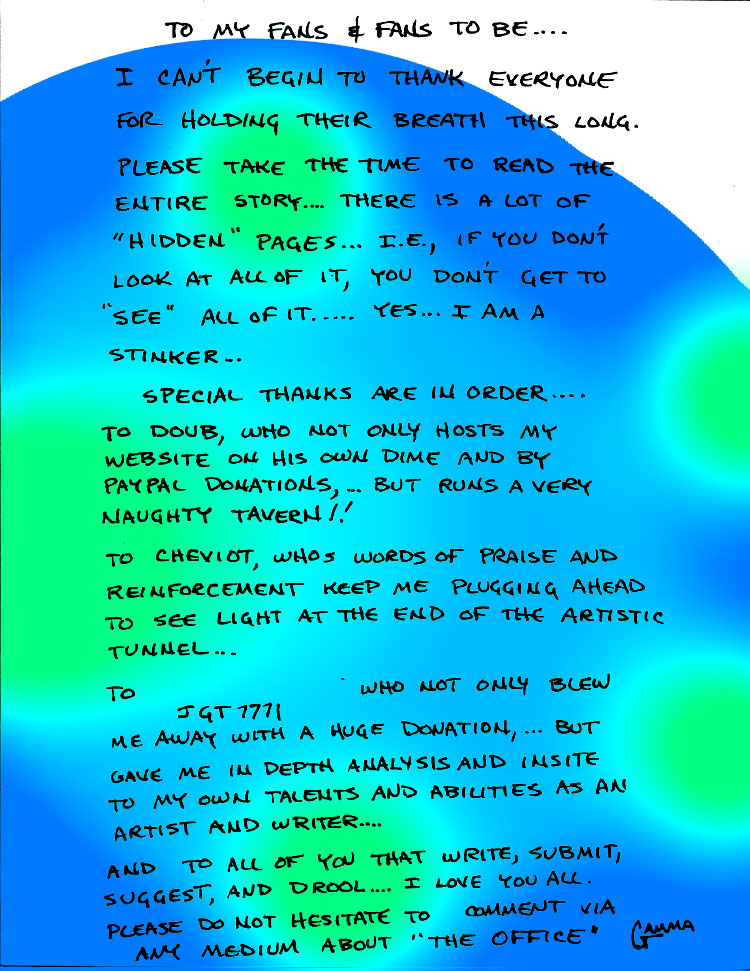 TO MY FANS & FANS TO BE....
I CAN'T BEGIN TO THANK EVERYONE
FOR HOLDING THEIR BREATH THIS LONG.
PLEASE TAKE THE TIME TO READ THE
ENTIRE STORY.... THERE IS A LOT OF
"HIDDEN" PAGES... I.E., IF YOU DON'T
LOOK AT ALL OF IT, YOU DON'T GET TO
"SEE" ALL OF IT..... YES... I AM A
STINKER...
SPECIAL THANKS ARE IN ORDER....
TO DOUB, WHO NOT ONLY HOSTS MY
WEBSITE ON HIS OWN DIME AND BY
PAYPAL DONATIONS,... BUT RUNS A VERY
NAUGHTY TAVERN!!
TO CHEVIOT, WHOS WORDS OF PRAISE AND
REINFORCEMENT KEEP ME PLUGGING AHEAD
TO SEE LIGHT AT THE END OF THE ARTISTIC
TUNNEL...
TO WHO NOT ONLY BLEW
JGT7771
ME AWAY WITH A HUGE DONATION,... BUT
GAVE ME IN DEPTH ANALYSIS AND INSITE
TO MY OWN TALENTS AND ABILITIES AS AN
ARTIST AND WRITER....
AND TO ALL OF YOU THAT WRITE, SUBMIT,
SUGGEST, AND DROOL.... I LOVE YOU ALL.
PLEASE DO NOT HESITATE TO COMMENT VIA
ANY MEDIUM ABOUT "THE OFFICE" GAMMA